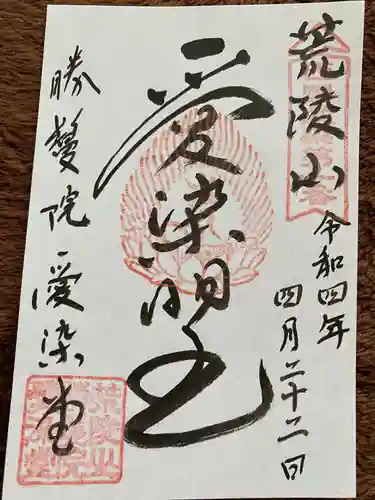 荒陵山
令和四年
四月二十二日
愛染明王
勝鬘院愛染堂